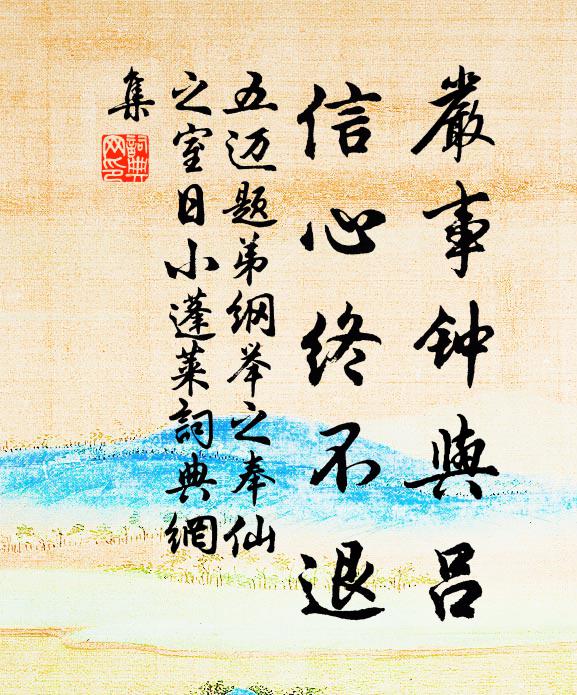 嚴事钟與呂
信心终不退
五迈题弟纲举之奉仙
之室日小蓬莱詞典網
集
詞典
网印